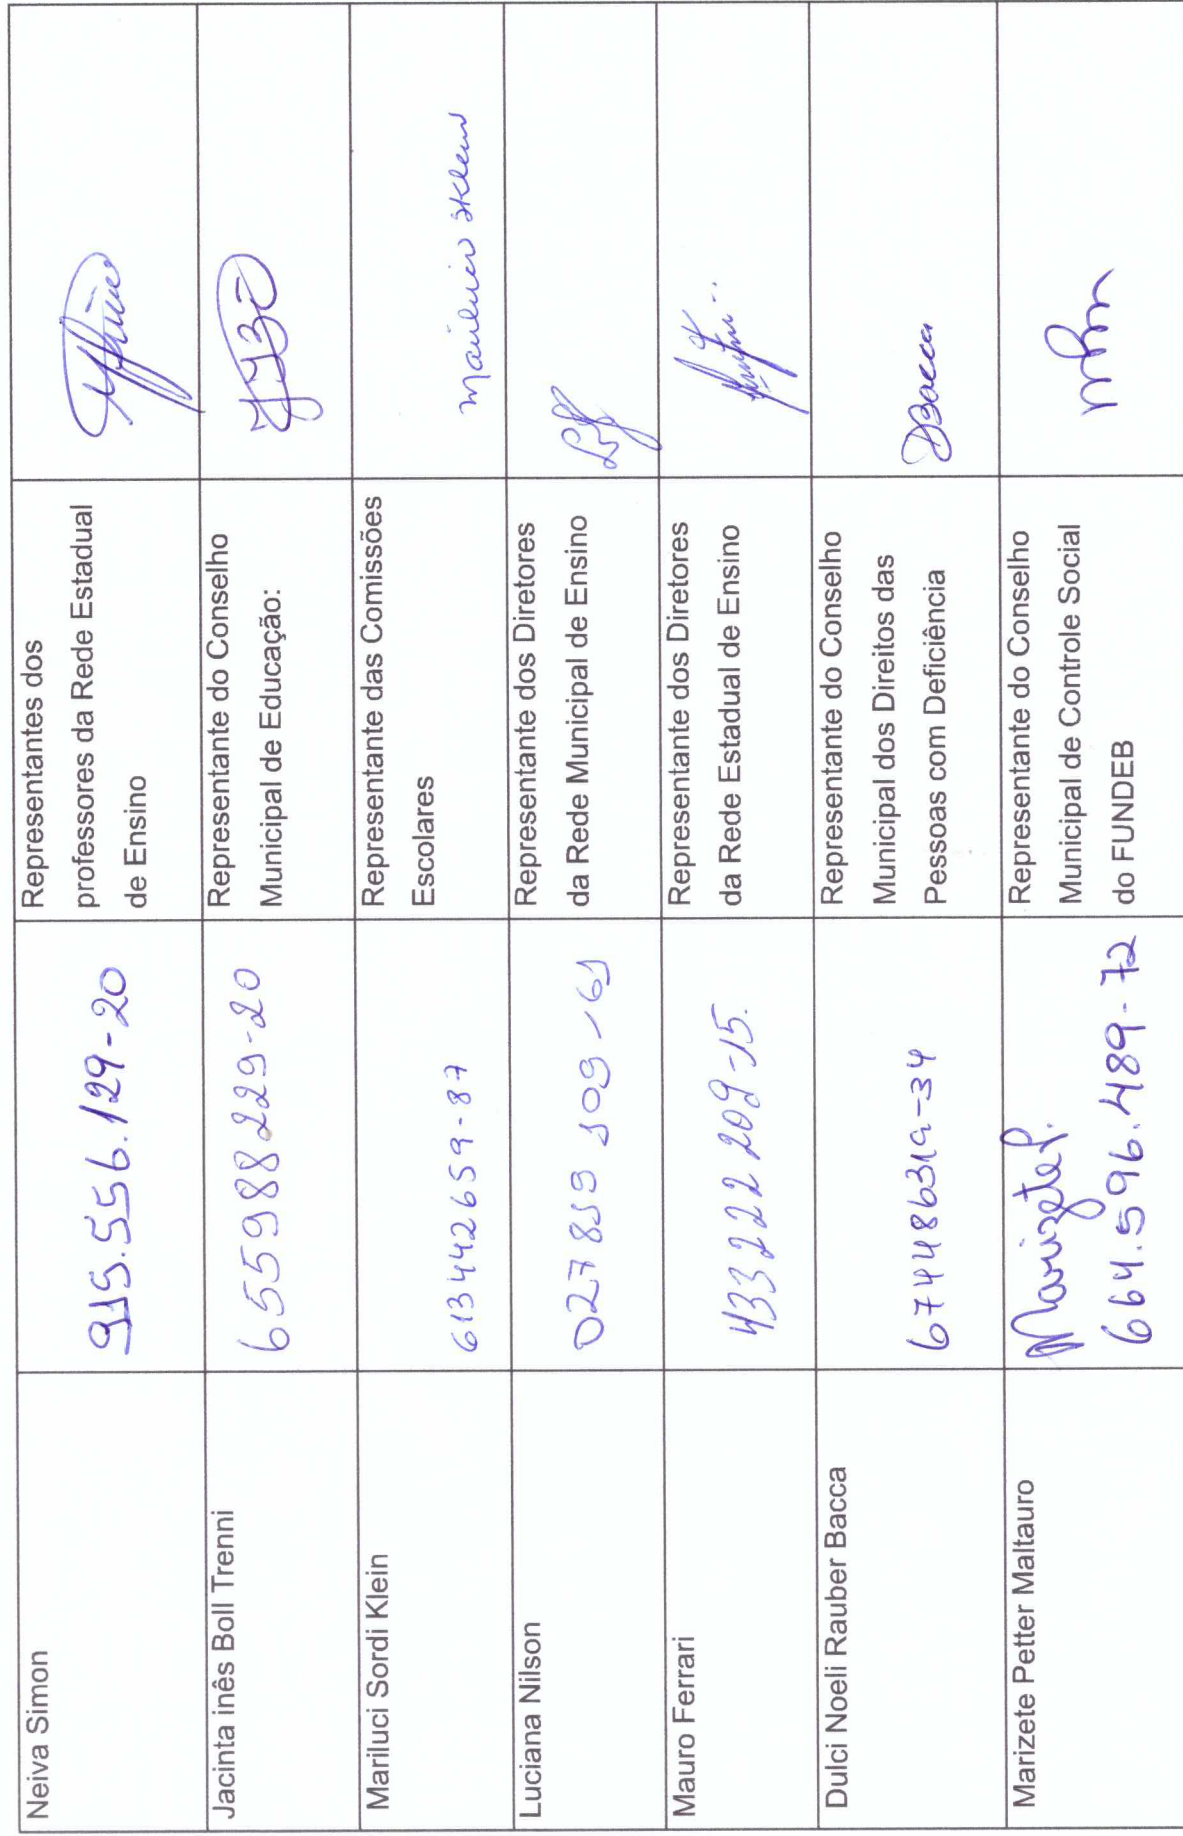 Neiva Simon
915.556.129-20
Representantes dos
professores da Rede Estadual
de Ensino
Jacinta inês Boll Trenni
655988229-20
Representante do Conselho
Municipal de Educação:
Mariluci Sordi Klein
613442659-87
Representante das Comissões
Escolares
Luciana Nilson
027859109-61
Representante dos Diretores
da Rede Municipal de Ensino
Mauro Ferrari
433222209-15.
Representante dos Diretores
da Rede Estadual de Ensino
Dulci Noeli Rauber Bacca
674486319-34
Representante do Conselho
Municipal dos Direitos das
Pessoas com Deficiência
DBacca
Marizete Petter Maltauro
Marizete P.
664.596.489-72
Representante do Conselho
Municipal de Controle Social
do FUNDEB